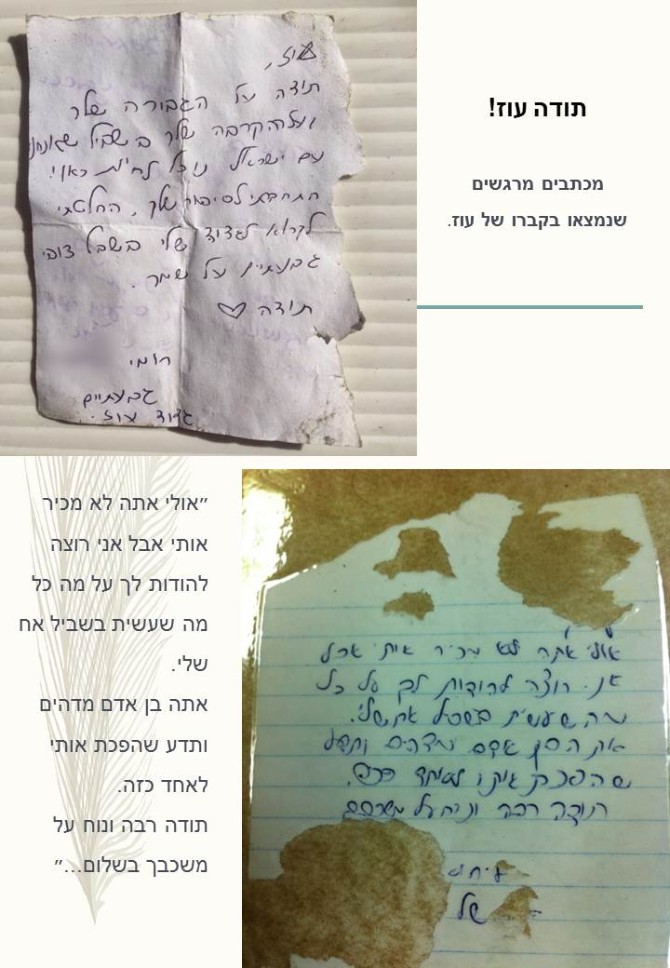 תודה עוז!
מכתבים מרגשים
שנמצאו בקברו של עוז.
עוז,
תודה על הגבורה שלך
ועל ההקרבה שלך בשביל שאנחנו
עם ישראל נוכל לחיות כאן.
התחברתי לסיפור שלך, החלטתי
לקרוא לגדוד שלי בשבט צופי
גבעתיים על שמך.
תודה ♡
רומי
גבעתיים
גדוד עוז.
"אולי אתה לא מכיר
אותי אבל אני רוצה
להודות לך על מה כל
מה שעשית בשביל אח
שלי.
אתה בן אדם מדהים
ותדע שהפכת אותי
לאחד כזה.
תודה רבה ונוח על
משכבך בשלום..."
אולי אתה לא מכיר אותי אבל
אני רוצה להודות לך על כל
מה שעשית בשביל אח שלי.
אתה בן אדם מדהים ותדע
שהפכת אותי לאחד כזה.
תודה רבה ונוח על משכבך
של